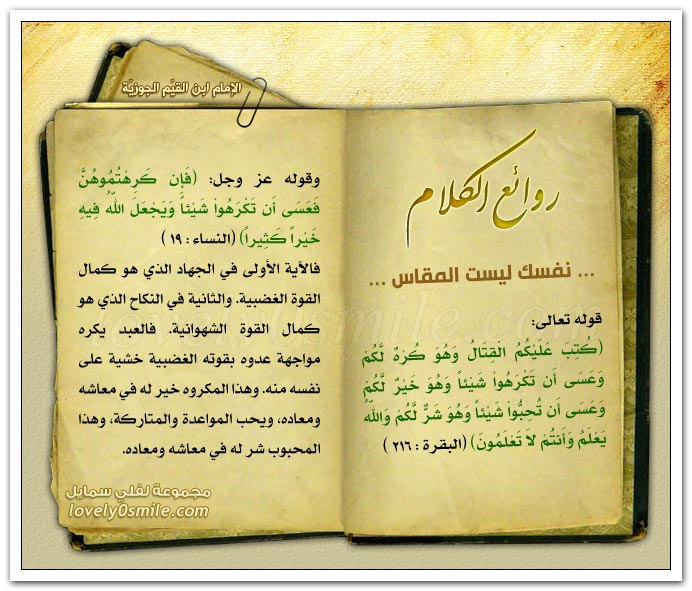 الإمام ابن القيّم الجوزيّة
روائع الكلام
... نفسك ليست المقاس ...
قوله تعالى:
(كُتِبَ عَلَيْكُمُ الْقِتَالُ وَهُوَ كُرْهٌ لَّكُمْ
وَعَسَى أَن تَكْرَهُواْ شَيْئاً وَهُوَ خَيْرٌ لَّكُمْ
وَعَسَى أَن تُحِبُّواْ شَيْئاً وَهُوَ شَرٌّ لَّكُمْ وَاللّهُ
يَعْلَمُ وَأَنتُمْ لاَ تَعْلَمُونَ) (البقرة : ٢١٦ )
وقوله عز وجل: (فَإِن كَرِهْتُمُوهُنَّ
فَعَسَى أَن تَكْرَهُواْ شَيْئاً وَيَجْعَلَ اللّهُ فِيهِ
خَيْراً كَثِيراً) (النساء : ١٩ )
فالآية الأولى في الجهاد الذي هو كمال
القوة الغضبية. والثانية في النكاح الذي هو
كمال القوة الشهوانية. فالعبد يكره
مواجهة عدوه بقوته الغضبية خشية على
نفسه منه. وهذا المكروه خير له في معاشه
ومعاده، ويحب الموادعة والمتاركة، وهذا
المحبوب شر له في معاشه ومعاده.
مجموعة لفلي سمايل
lovely0smile.com
lovely0smile.com